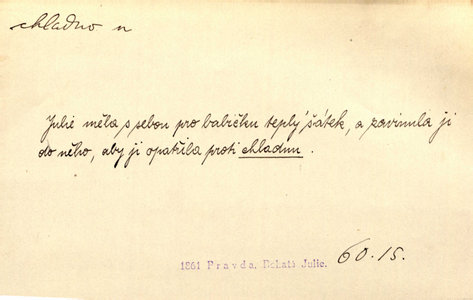 chladno n
Julie měla s sebou pro babičku teplý šátek, a zavinula ji
do něho, aby ji opatřila proti chladnu.
1861 Pravda. Bohatá Julie. 60.15.